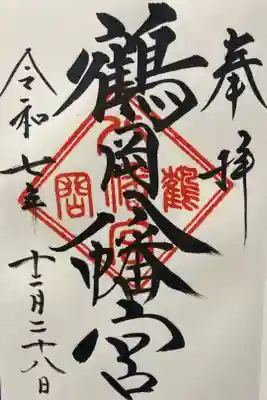 奉拝
鶴岡八幡宮
鶴
八幡宮
岡
令和七年
十二月二十八日